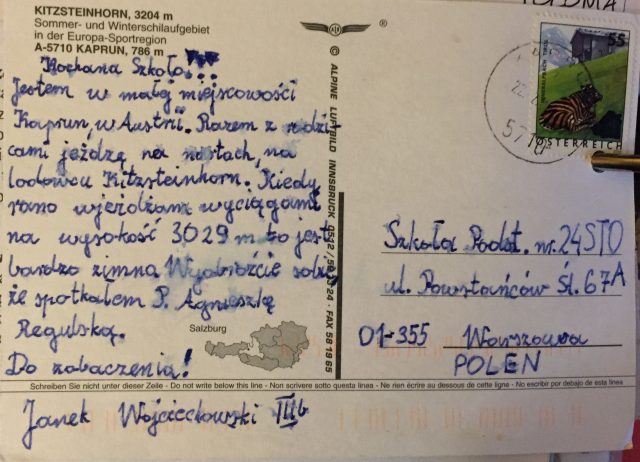 KITZSTEINHORN, 3204 m
Sommer- und Winterschilaufgebiet
in der Europa-Sportregion
A-5710 KAPRUN, 786 m
Kochana Szkoło...
Jestem w małej miejscowości
Kaprun, w Austrii. Razem z rodzi-
cami jeżdżę na nartach, na
lodowcu Kitzsteinhorn. Kiedy
rano wjeżdżam wyciągami
na wysokość 3029 m to jest
bardzo zimno. Wyobraźcie sobie,
że spotkałem P. Agnieszkę
Regulską.
Do zobaczenia!
Salzburg
© ALPINE LUFTBILD INNSBRUCK 0512 / FAX 58 19 65
55
ÖSTERREICH
Szkoła Podst. nr. 24 STO
ul. Powstańców Śl. 67A
01-355 Warszawa
POLEN
Schreiben Sie nicht unter dieser Zeile - Do not write below this line - Non scrivere sotto questa linea - Ne rien écrire au dessous de cette ligne - No escribir por debajo de esta linea
Janek Wojciechowski IIIb